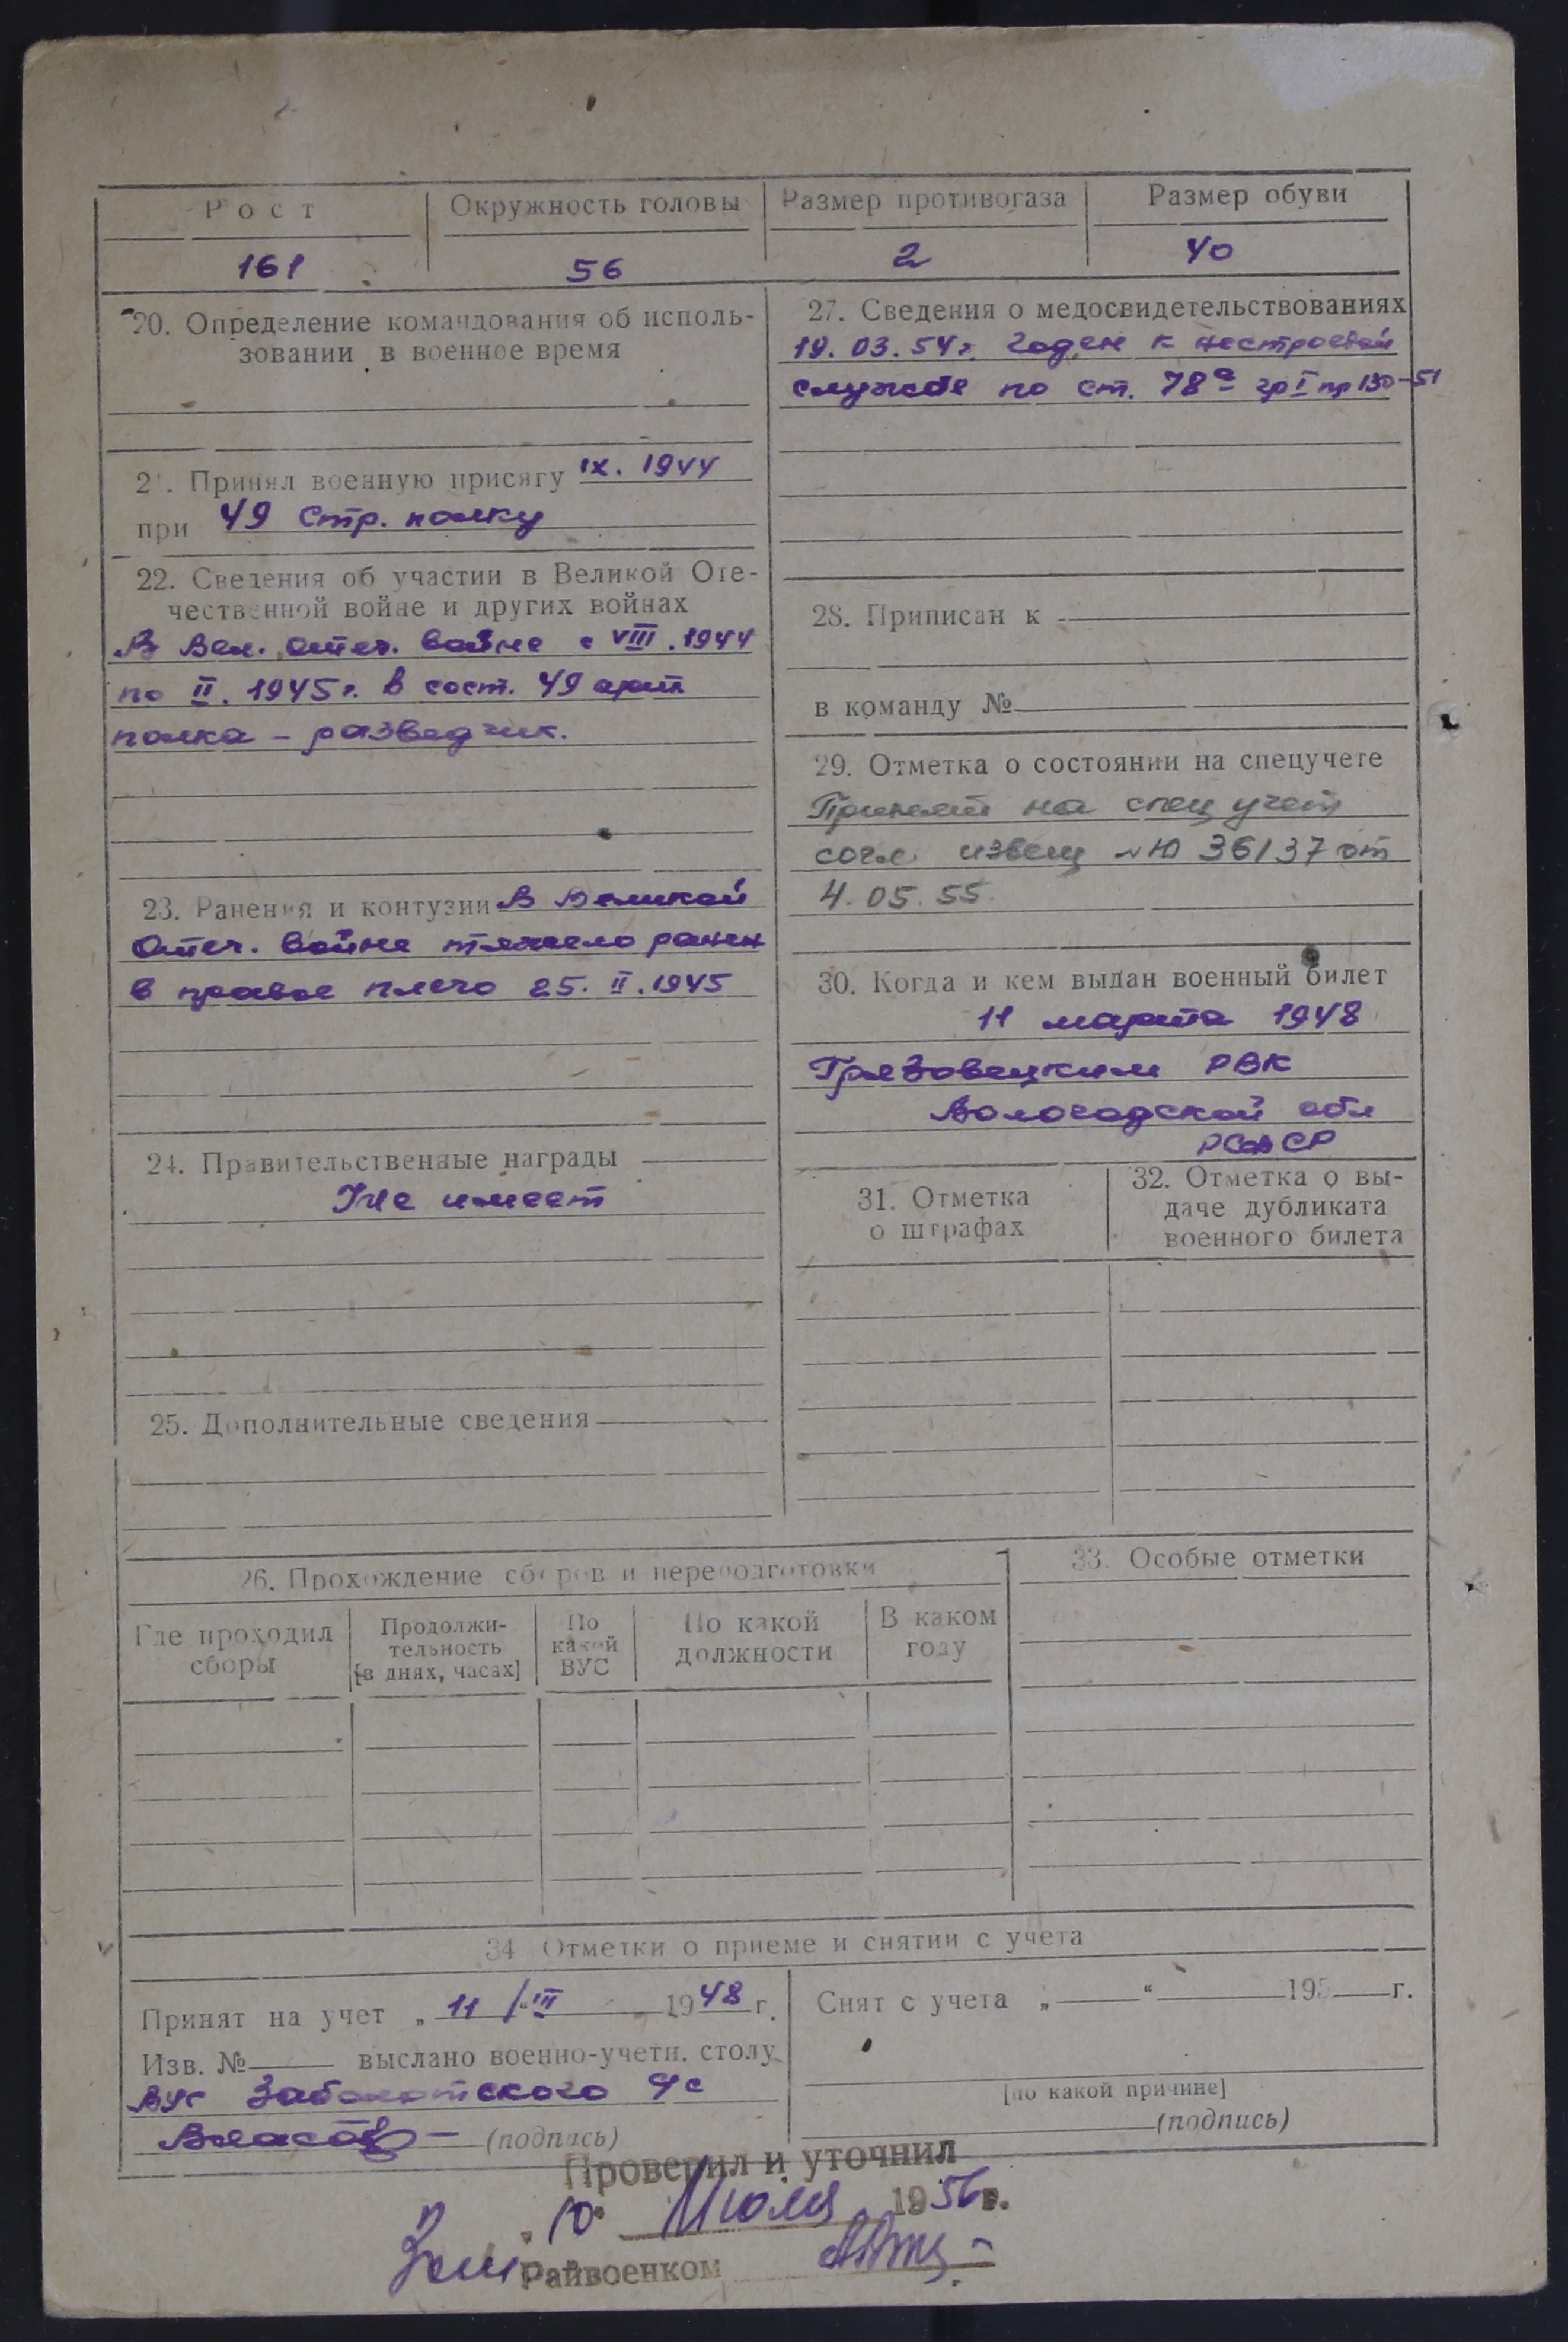 Рост Окружность головы Размер противогаза Размер обуви
161 56 2 40
20. Определение командования об исполь-
зовании в военное время
21. Принял военную присягу IX. 1944
при 49 стр. полку
22. Сведения об участии в Великой Оте-
чественной войне и других войнах
В Вел. отеч. войне с VIII. 1944
по II. 1945 г. в сост. 49 арт
полка – разведчик.
23. Ранения и контузии В Великой
Отеч. войне тяжело ранен
в правое плечо 25. II. 1945
24. Правительственные награды
Не имеет
25. Дополнительные сведения
27. Сведения о медосвидетельствованиях
19. 03. 54 г. Годен к нестроевой
службе по ст. 78а гр I пр 130-51
28. Приписан к
в команду №
29. Отметка о состоянии на спецучете
Принят на спец учет
согл. извещ № 36137 от
4. 05. 55
30. Когда и кем выдан военный билет
11 марта 1948
Грязовецким РВК
Вологодской обл
РСФСР
31. Отметка
о штрафах
32. Отметка о вы-
даче дубликата
военного билета
26. Прохождение сборов и переподготовки
Где проходил
сборы
Продолжи-
тельность
[в днях, часах]
По
какой
ВУС
По какой
должности
В каком
году
33. Особые отметки
34 Отметки о приеме и снятии с учета
Принят на учет „ 11 /“ III 1948 г.
Изв. № выслано военно-учетн. столу
ВУС Заболотского ч с
(подпись)
Снят с учета „ “ 195 г.
[по какой причине]
(подпись)
Проверил и уточнил
„ 10 “ Июля 1956 г.
Райвоенком